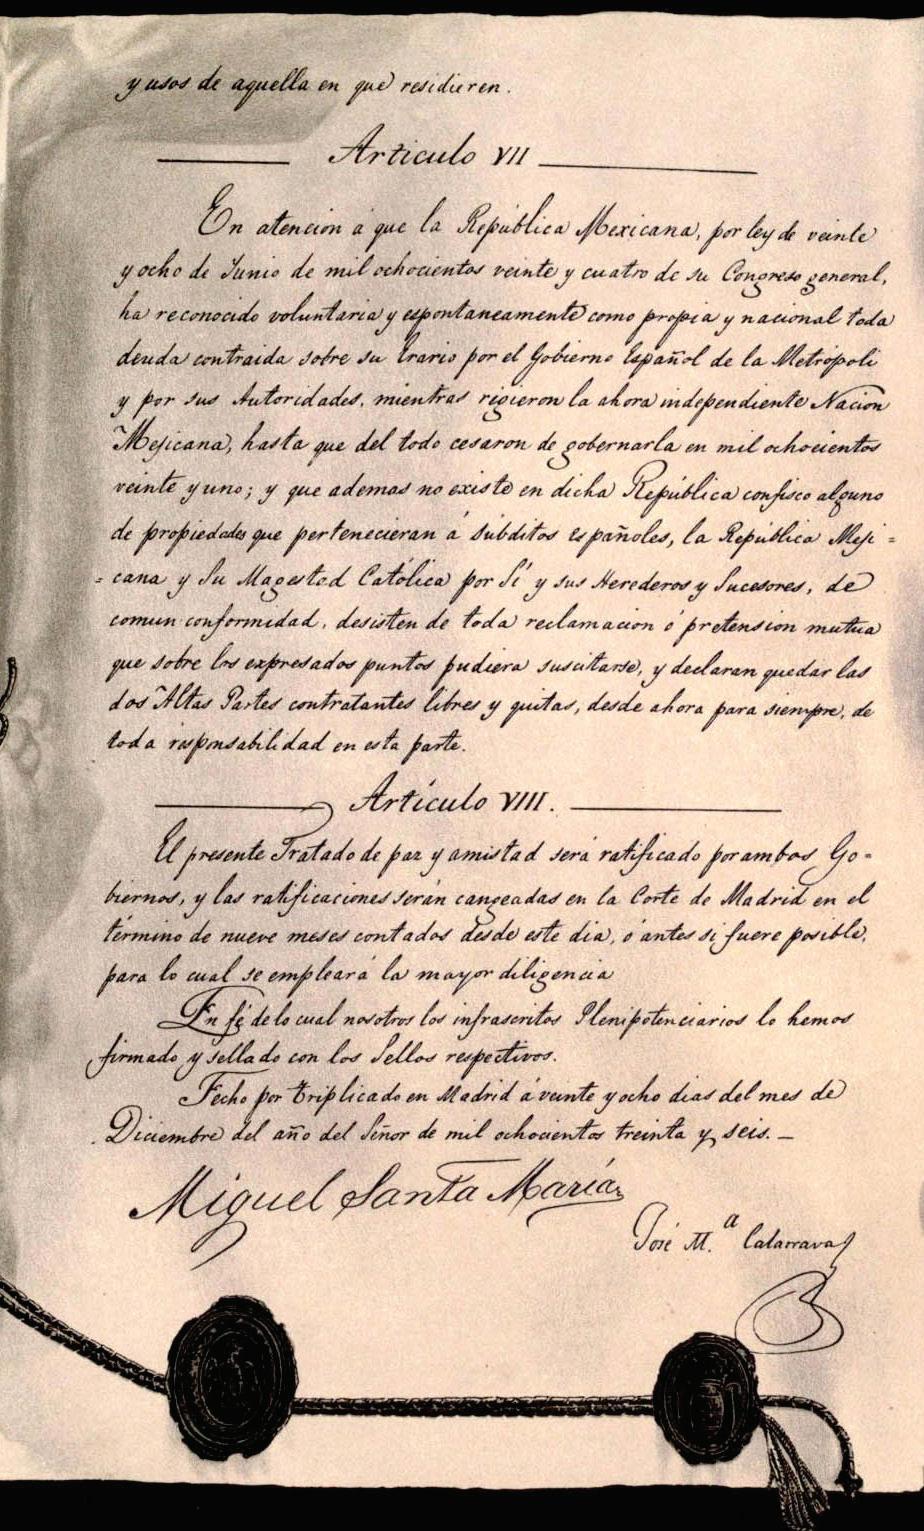 y usos de aquella en que residieren.
Articulo VII
En atencion á que la República Mexicana, por ley de veinte
y ocho de Junio de mil ochocientos veinte y cuatro de su Congreso general,
ha reconocido voluntaria y espontaneamente como propia y nacional toda
deuda contraida sobre su Erario por el Gobierno Español de la Metrópoli
y por sus Autoridades, mientras rigieron la ahora independiente Nacion
Mejicana, hasta que del todo cesaron de gobernarla en mil ochocientos
veinte y uno; y que ademas no existe en dicha República confisco alguno
de propiedades que pertenecieran á súbditos españoles, la República Meji=
=cana y Su Magestad Católica por Sí y sus Herederos y Sucesores, de
comun conformidad, desisten de toda reclamacion ó pretension mutua
que sobre los expresados puntos pudiera suscitarse, y declaran quedar las
dos Altas Partes contratantes libres y quitas, desde ahora para siempre, de
toda responsabilidad en esta parte.
Artículo VIII.
El presente Tratado de paz y amistad será ratificado por ambos Go=
biernos, y las ratificaciones serán cangeadas en la Corte de Madrid en el
término de nueve meses contados desde este dia, ó antes si fuere posible,
para lo cual se empleará la mayor diligencia
En fé de lo cual nosotros los infrascritos Plenipotenciarios lo hemos
firmado y sellado con los Sellos respectivos.
Fecho por triplicado en Madrid á veinte y ocho dias del mes de
Diciembre del año del Señor de mil ochocientos treinta y seis. _
Miguel Santa María
José M.ª Calatrava